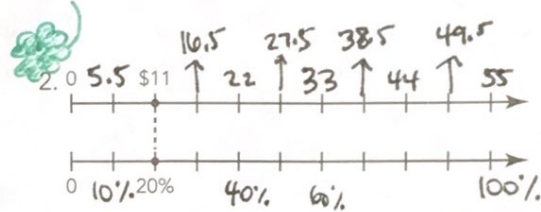 16.5 27.5 38.5 49.5
2. 0 5.5 $11 22 33 44 55
0 10% 20% 40% 60% 100%